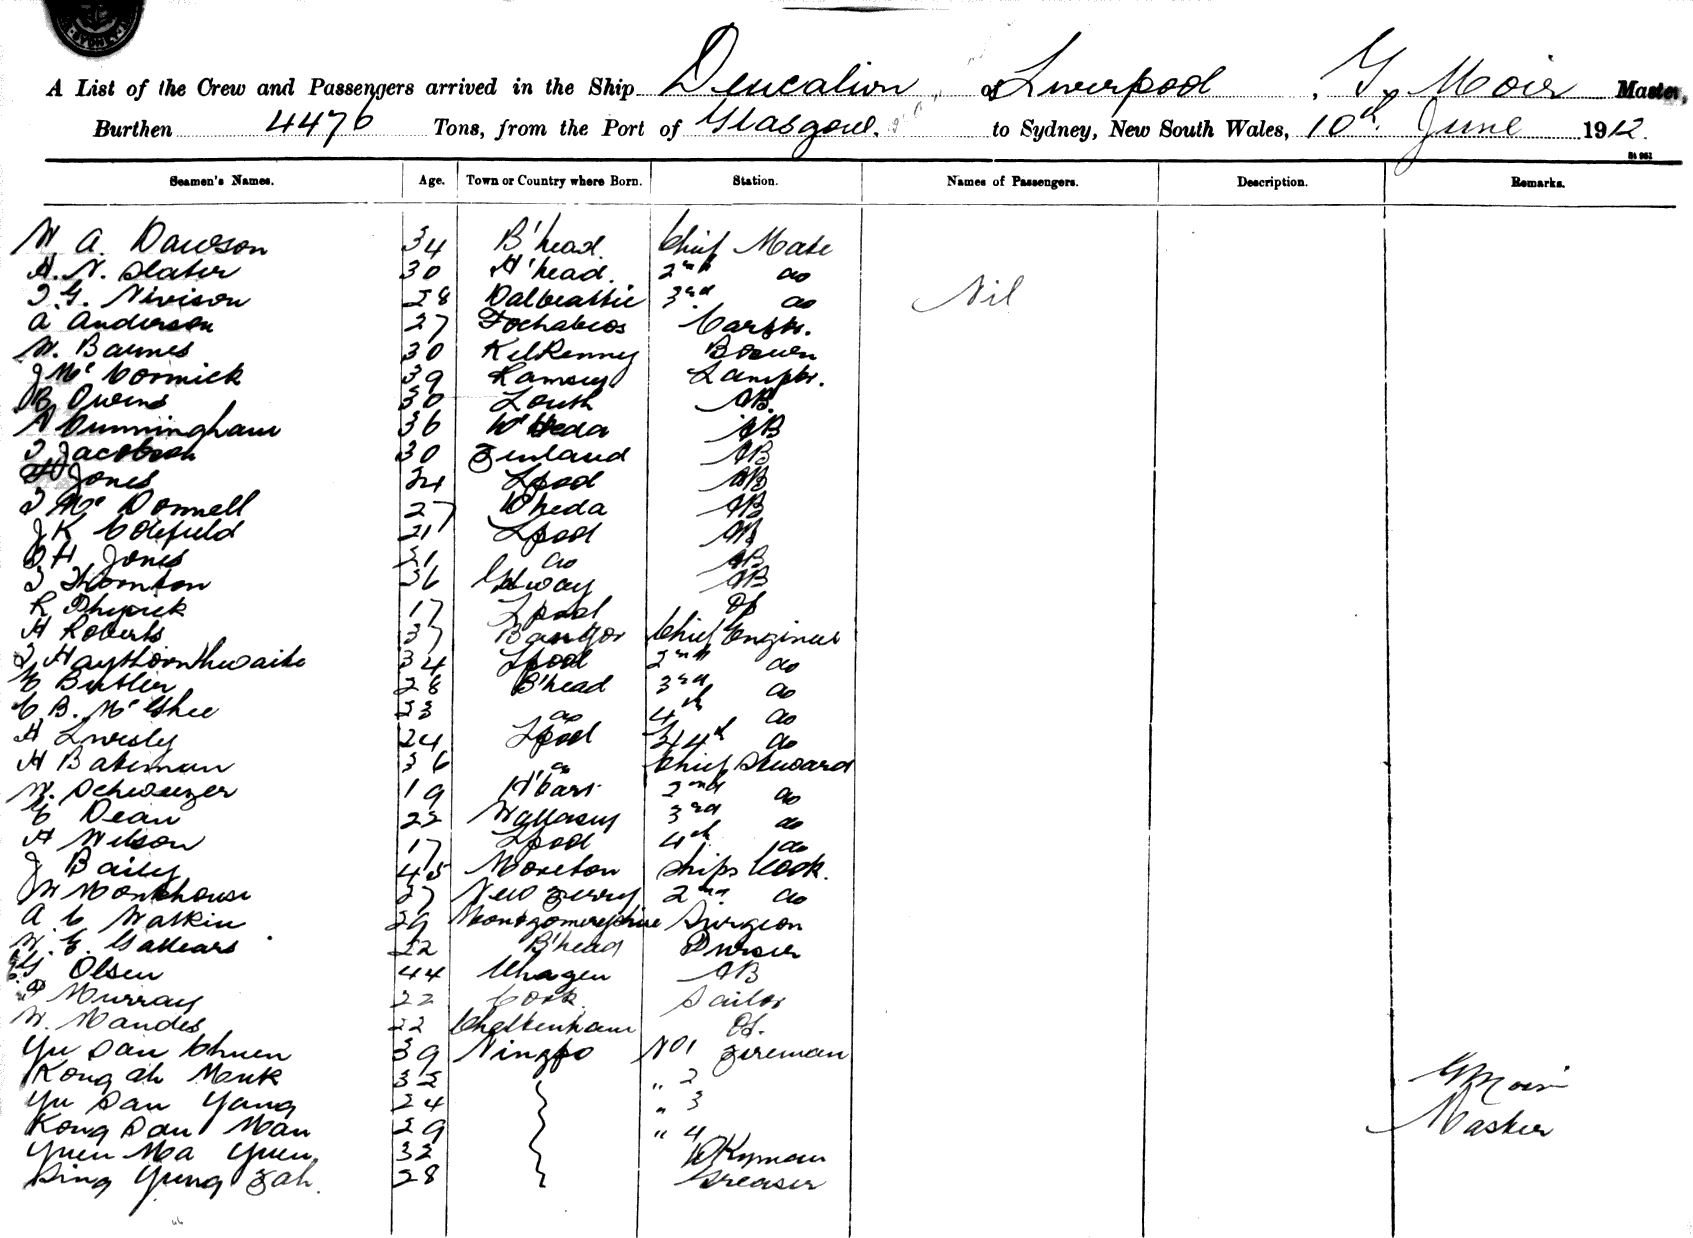 SYDNEY
A List of the Crew and Passengers arrived in the Ship Deucalion of Liverpool, G. Moir Master,
Burthen 4476 Tons, from the Port of Glasgow. to Sydney, New South Wales, 10th June 1912.
Seamen's Names. Age. Town or Country where Born. Station. Names of Passengers. Description. Remarks.
W A. Dawson 34 B'head. Chief Mate
H. N. Slater 30 B'head. 2nd do
T G. Nivison 28 Dalbeattie 3rd do Nil
A Anderson 27 Fochabers Carptr.
W. Barnes 30 Kilkenny Bosun
J McCormick 39 Ramsey Lamptr.
B Owens 30 Louth AB.
A Cunningham 36 D'heda AB
T Jacobson 30 Finland AB
H Jones 24 Lpool AB
T McDonnell 27 D'heda AB
J K Colefield 21 Lpool AB
D H Jones 21 do AB
T Thornton 36 Galway AB
R 17 Lpool OS
H Roberts 37 Bangor Chief Engineer
T Haythornthwaite 34 Lpool 2nd do
E Butler 28 B'head 3rd do
C B. McGhee 23 do 4th do
H Livesly 24 Lpool 4th do
H Bateman 36 do Chief Steward
W. Schweizer 19 2nd do
E Dean 22 Wallasey 3rd do
H Wilson 17 Lpool 4th do
J Baily 45 Moreton Ships Cook.
W Monkhouse 27 New Ferry 2nd do
A C Watkin 29 Montgomeryshire Surgeon
W. E. Gallears 22 B'head Purser
G Olsen 44 C'hagen AB
P Murray 22 Cork. Sailor
W. Mandes 22 Cheltenham OS.
Yu San Chuen 39 Ningpo No1 Fireman
Kong ah Muk 32 " 2 G Moir
Yu San Yang 24 " 3
Kong San Mau 29 " 4 Master
Yuen Ma Yuen. 32 Dkyman
Sing Yung Zah. 28 Greaser